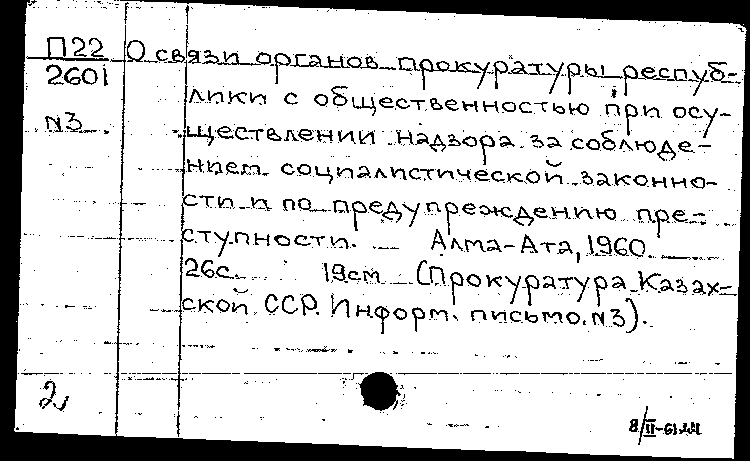 П22 О связи органов прокуратуры респуб-
2601 лики с общественностью при осу-
N3 ществлении надзора за соблюде-
нием социалистической законно-
сти и по предупреждению пре-
ступности. — Алма-Ата, 1960
26с. 19см (Прокуратура Казах-
ской ССР. Информ. письмо. N3).
2
8/II-61